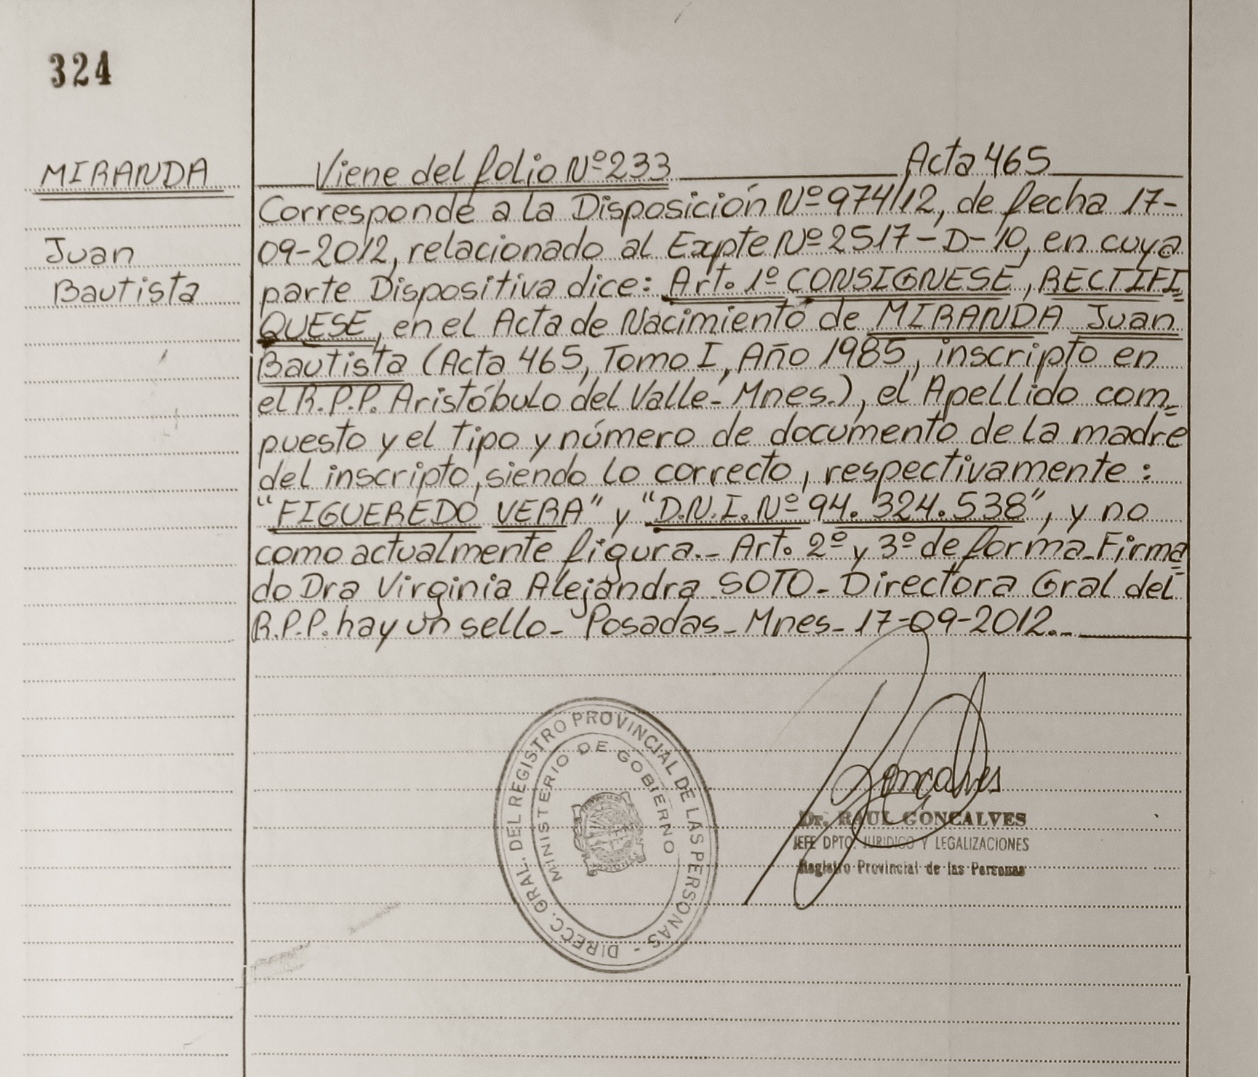 324
MIRANDA
Juan
Bautista
Viene del folio Nº 233 Acta 465
Corresponde a la Disposición Nº 974/12, de fecha 17-
09-2012, relacionado al Expte Nº 2517-D-10, en cuya
parte Dispositiva dice: Art. 1º CONSIGNESE, RECTIFI
QUESE, en el Acta de Nacimiento de MIRANDA Juan
Bautista (Acta 465, Tomo I, Año 1985, inscripto en
el R.P.P. Aristóbulo del Valle- Mnes.), el Apellido com_
puesto y el tipo y número de documento de la madre
del inscripto, siendo lo correcto, respectivamente:
"FIGUEREDO VERA" y "D.N.I. Nº 94.324.538", y no
como actualmente figura._ Art. 2º y 3º de forma_ Firma
do Dra Virginia Alejandra SOTO_ Directora Gral del
R.P.P. hay un sello_ Posadas_ Mnes- 17-09-2012._
DIRECC. GRAL. DEL REGISTRO PROVINCIAL DE LAS PERSONAS -
MINISTERIO DE GOBIERNO
Goncalves
Dr. RAUL GONCALVES
JEFE DPTO. JURIDICO Y LEGALIZACIONES
Registro Provincial de las Personas